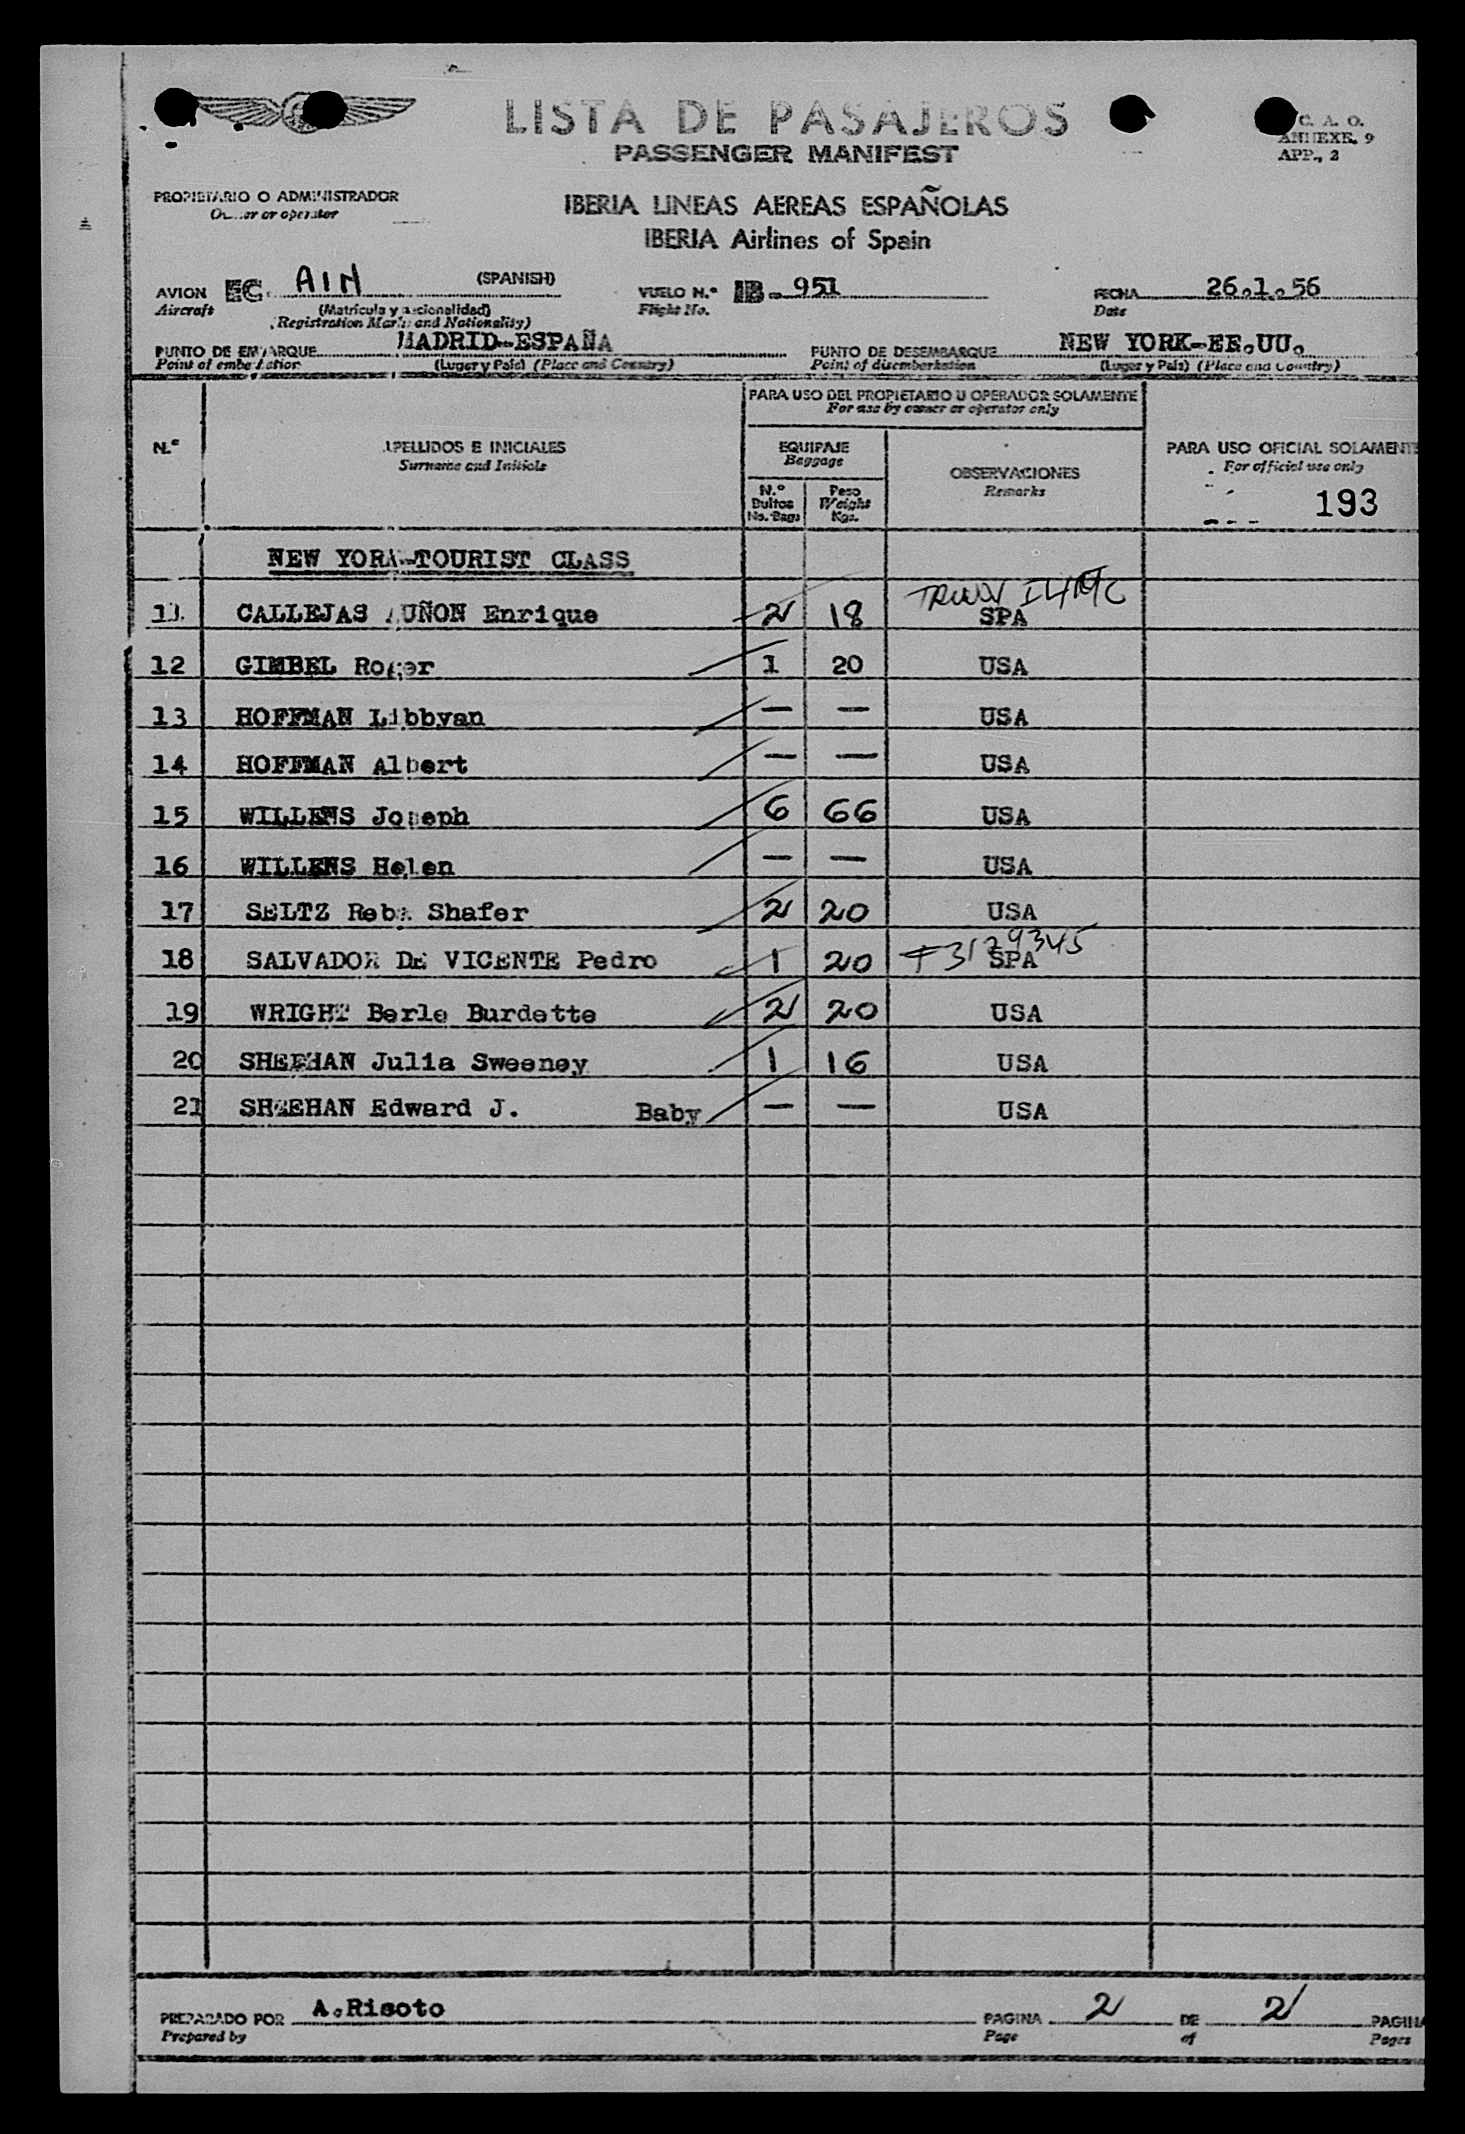 LISTA DE PASAJEROS
PASSENGER MANIFEST
C. A. O.
ANNEXE. 9
APP., 2
PROPIETARIO O ADMINISTRADOR
Owner or operator
IBERIA LINEAS AEREAS ESPAÑOLAS
IBERIA Airlines of Spain
AVION EC. AIN (SPANISH) VUELO N.º IB. 951 FECHA 26.1.56
Aircraft (Matrícula y nacionalidad) Flight No. Date
(Registration Marks and Nationality)
PUNTO DE EMBARQUE MADRID-ESPAÑA PUNTO DE DESEMBARQUE NEW YORK-EE.UU.
Point of embarkation (Lugar y País) (Place and Country) Point of disembarkation (Lugar y País) (Place and Country)
PARA USO DEL PROPIETARIO U OPERADOR SOLAMENTE
For use by owner or operator only
N.º APELLIDOS E INICIALES EQUIPAJE PARA USO OFICIAL SOLAMENTE
Surname and Initials Baggage OBSERVACIONES For official use only
N.º Bultos Peso Remarks
No. Bags Weight Kgs. 193
NEW YORK-TOURIST CLASS
11 CALLEJAS AUÑON Enrique 2 18 SPA
12 GIMBEL Roger 1 20 USA
13 HOFFMAN Libbyan — — USA
14 HOFFMAN Albert — — USA
15 WILLENS Joseph 6 66 USA
16 WILLENS Helen — — USA
17 SELTZ Reba Shafer 2 20 USA
18 SALVADOR DE VICENTE Pedro 1 20 F3129345 SPA
19 WRIGHT Berle Burdette 2 20 USA
20 SHEEHAN Julia Sweeney 1 16 USA
21 SHEEHAN Edward J. Baby — — USA
PREPARADO POR A.Risoto PAGINA 2 DE 2 PAGINA
Prepared by Page of Pages